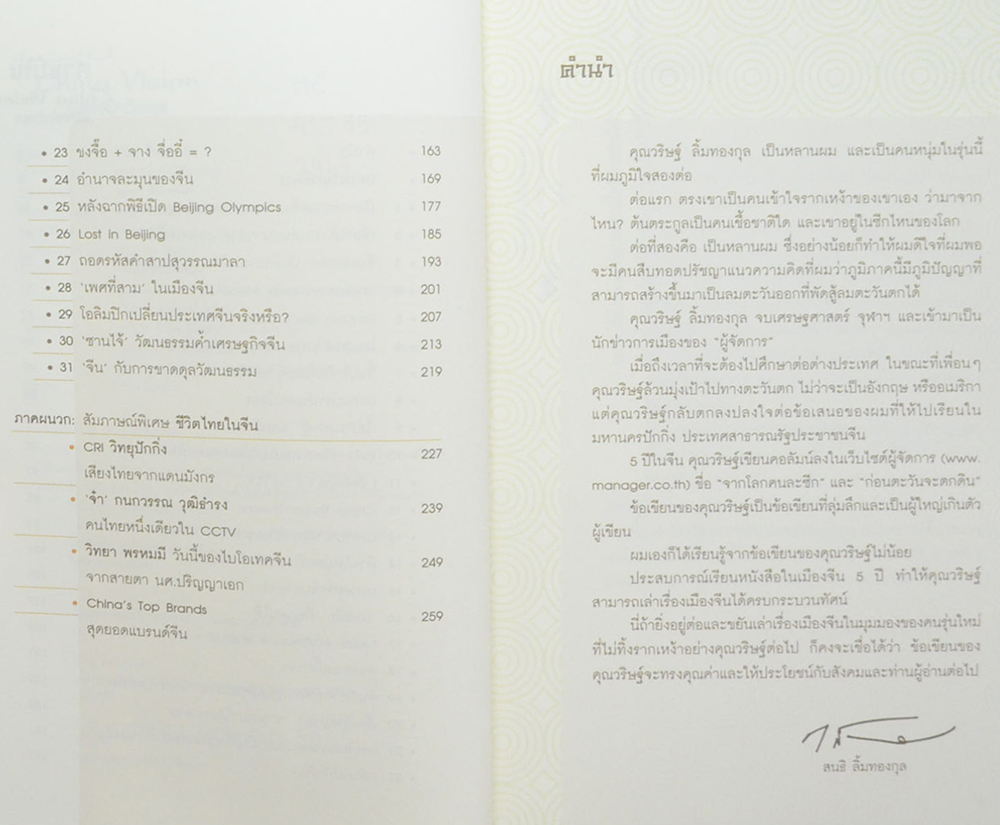 • 23 ขงจื๊อ + จาง จื่ออี๋ = ? 163
• 24 อำนาจละมุนของจีน 169
• 25 หลังฉากพิธีเปิด Beijing Olympics 177
• 26 Lost in Beijing 185
• 27 ถอดรหัสคำสาปสุวรรณมาลา 193
• 28 'เพศที่สาม' ในเมืองจีน 201
• 29 โอลิมปิกเปลี่ยนประเทศจีนจริงหรือ? 207
• 30 'ซานไจ้' วัฒนธรรมค้ำเศรษฐกิจจีน 213
• 31 'จีน' กับการขาดดุลวัฒนธรรม 219
ภาคผนวก: สัมภาษณ์พิเศษ ชีวิตไทยในจีน
• CRI วิทยุปักกิ่ง 227
เสียงไทยจากแดนมังกร
• 'จ๋ำ' กนกวรรณ วุฒิธำรง 239
คนไทยหนึ่งเดียวใน CCTV
• วิทยา พรหมมี วันนี้ของไบโอเทคจีน 249
จากสายตา นศ.ปริญญาเอก
• China's Top Brands 259
สุดยอดแบรนด์จีน
คำนำ
คุณวริษฐ์ ลิ้มทองกุล เป็นหลานผม และเป็นคนหนุ่มในรุ่นนี้
ที่ผมภูมิใจสองต่อ
ต่อแรก ตรงเขาเป็นคนเข้าใจรากเหง้าของเขาเอง ว่ามาจาก
ไหน? ต้นตระกูลเป็นคนเชื้อชาติใด และเขาอยู่ในซีกไหนของโลก
ต่อที่สองคือ เป็นหลานผม ซึ่งอย่างน้อยก็ทำให้ผมดีใจที่ผมพอ
จะมีคนสืบทอดปรัชญาแนวความคิดที่ผมว่าภูมิภาคนี้มีภูมิปัญญาที่
สามารถสร้างขึ้นมาเป็นลมตะวันออกที่พัดสู้ลมตะวันตกได้
คุณวริษฐ์ ลิ้มทองกุล จบเศรษฐศาสตร์ จุฬาฯ และเข้ามาเป็น
นักข่าวการเมืองของ "ผู้จัดการ"
เมื่อถึงเวลาที่จะต้องไปศึกษาต่อต่างประเทศ ในขณะที่เพื่อนๆ
คุณวริษฐ์ล้วนมุ่งเป้าไปทางตะวันตก ไม่ว่าจะเป็นอังกฤษ หรืออเมริกา
แต่คุณวริษฐ์กลับตกลงปลงใจต่อข้อเสนอของผมที่ให้ไปเรียนใน
มหานครปักกิ่ง ประเทศสาธารณรัฐประชาชนจีน
5 ปีในจีน คุณวริษฐ์เขียนคอลัมน์ลงในเว็บไซต์ผู้จัดการ (www.
manager.co.th) ชื่อ "จากโลกคนละซีก" และ "ก่อนตะวันจะตกดิน"
ข้อเขียนของคุณวริษฐ์เป็นข้อเขียนที่ลุ่มลึกและเป็นผู้ใหญ่เกินตัว
ผู้เขียน
ผมเองก็ได้เรียนรู้จากข้อเขียนของคุณวริษฐ์ไม่น้อย
ประสบการณ์เรียนหนังสือในเมืองจีน 5 ปี ทำให้คุณวริษฐ์
สามารถเล่าเรื่องเมืองจีนได้ครบกระบวนทัศน์
นี่ถ้ายิ่งอยู่ต่อและขยันเล่าเรื่องเมืองจีนในมุมมองของคนรุ่นใหม่
ที่ไม่ทิ้งรากเหง้าอย่างคุณวริษฐ์ต่อไป ก็คงจะเชื่อได้ว่า ข้อเขียนของ
คุณวริษฐ์จะทรงคุณค่าและให้ประโยชน์กับสังคมและท่านผู้อ่านต่อไป
สนธิ ลิ้มทองกุล